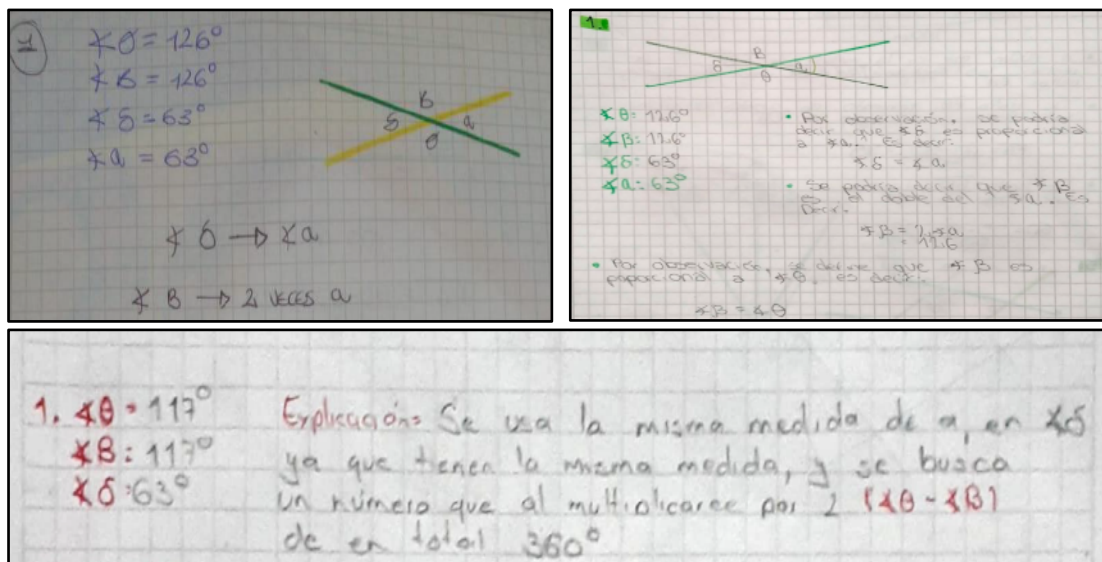 1
∡θ = 126°
∡B = 126°
∡δ = 63°
∡a = 63°
B
δ a
θ
∡ δ → ∡a
∡ B → 2 veces a
1.
B
δ a
θ
∡θ: 126°
∡β: 126°
∡δ: 63°
∡a: 63°
• Por observación, se podría
decir que ∡δ es proporcional
a ∡a. es decir:
∡δ = ∡a
• Se podría decir que ∡B
es el doble del ∡a. Es
Decir.
∡β = 2.∡a
= 126
• Por observación, se define que ∡β es
poporcional a ∡θ. es decir:
∡β = ∡θ
1. ∡θ = 117°
∡B: 117°
∡δ: 63°
Explicación: Se usa la misma medida de a, en ∡δ
ya que tienen la misma medida, y se busca
un número que al multiplicarce por 2 (∡θ - ∡B)
de en total 360°